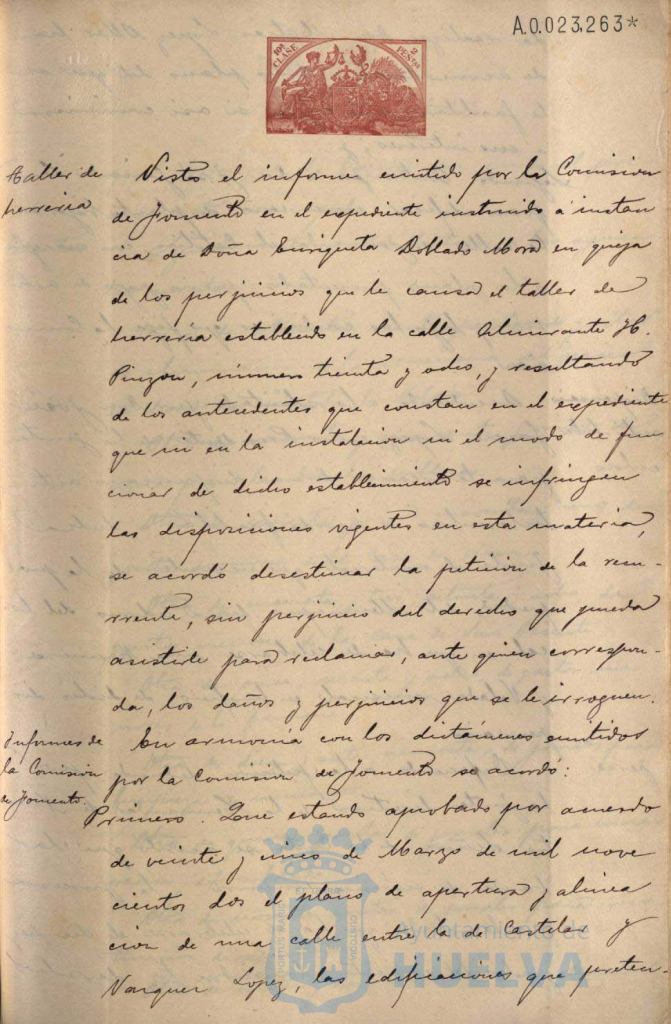 A.0.023,263*
10ª CLASE
2 PESTAS
Taller de
herreria
Visto el informe emitido por la Comision
de Fomento en el expediente instruido á instan
cia de Doña Enriqueta Doblado Mora en queja
de los perjuicios que le causa el taller de
herreria establecido en la calle Almirante H.
Pinzon, número treinta y ocho, y resultando
de los antecedentes que constan en el expediente
que ni en la instalacion ni el modo de fun
cionar de dicho establecimiento se infringen
las disposiciones vigentes en esta materia,
se acordó desestimar la peticion de la recu-
rrente, sin perjuicio del derecho que pueda
asistirle para reclamar, ante quien correspon-
da, los daños y perjuicios que se le irroguen.
Informes de
la Comision
de Fomento.
En armonia con los dictámenes emitidos
por la Comision de Fomento se acordó:
Primero. Que estando aprobado por acuerdo
de veinte y cinco de Marzo de mil nove
cientos dos el plano de apertura y alinea
cion de una calle entre la de Castelar y
Vazquez Lopez, las edificaciones que preten-
Ayuntamiento de
HUELVA